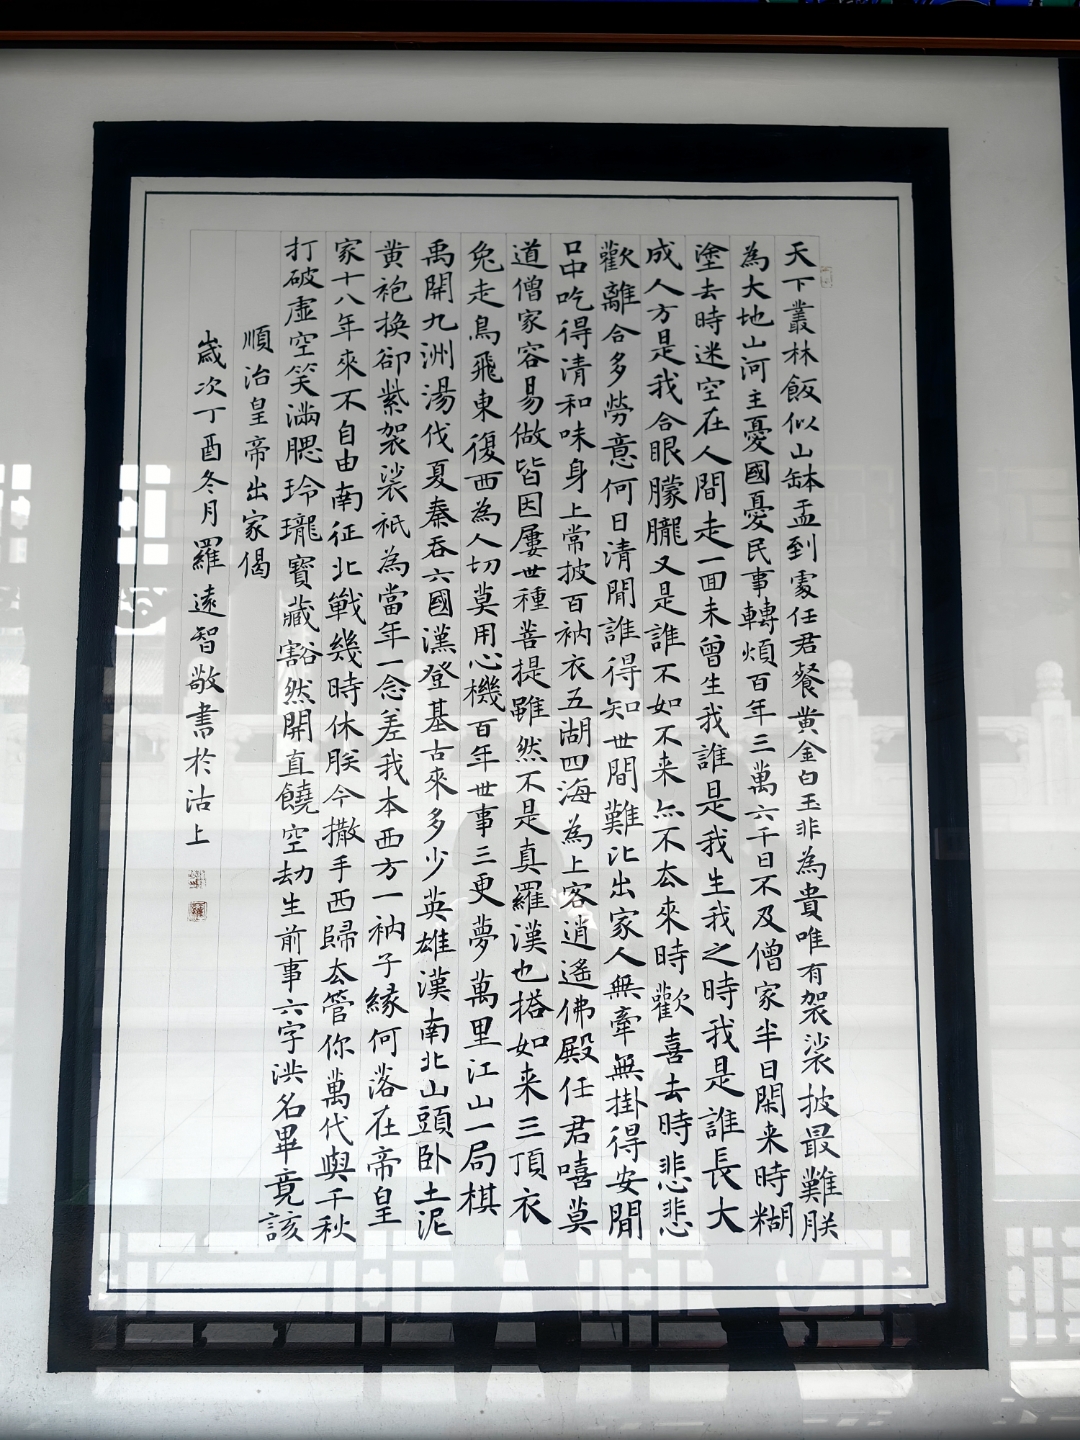 天下叢林飯似山缽盂到處任君餐黄金白玉非為貴唯有袈裟披最難朕
為大地山河主憂國憂民事轉煩百年三萬六千日不及僧家半日閑来時糊
塗去時迷空在人間走一囬未曾生我誰是我生我之時我是誰長大
成人方是我合眼朦朧又是誰不如不来亦不去來時歡喜去時悲悲
歡離合多勞意何日清閒誰得知世間難比出家人無牽無掛得安閒
口中吃得清和味身上常披百衲衣五湖四海為上客逍遙佛殿任君嘻莫
道僧家容易做皆因屢世種菩提雖然不是真羅漢也搭如来三頂衣
兔走鳥飛東復西為人切莫用心機百年世事三更夢萬里江山一局棋
禹開九洲湯伐夏秦吞六國漢登基古來多少英雄漢南北山頭卧土泥
黄袍換卻紫袈裟衹為當年一念差我本西方一衲子緣何落在帝皇
家十八年來不自由南征北戰幾時休朕今撒手西歸去管你萬代與千秋
打破虛空笑滿腮玲瓏寶藏豁然開直饒空劫生前事六字洪名畢竟該
順治皇帝出家偈
歲次丁酉冬月羅遠智敬書於沽上